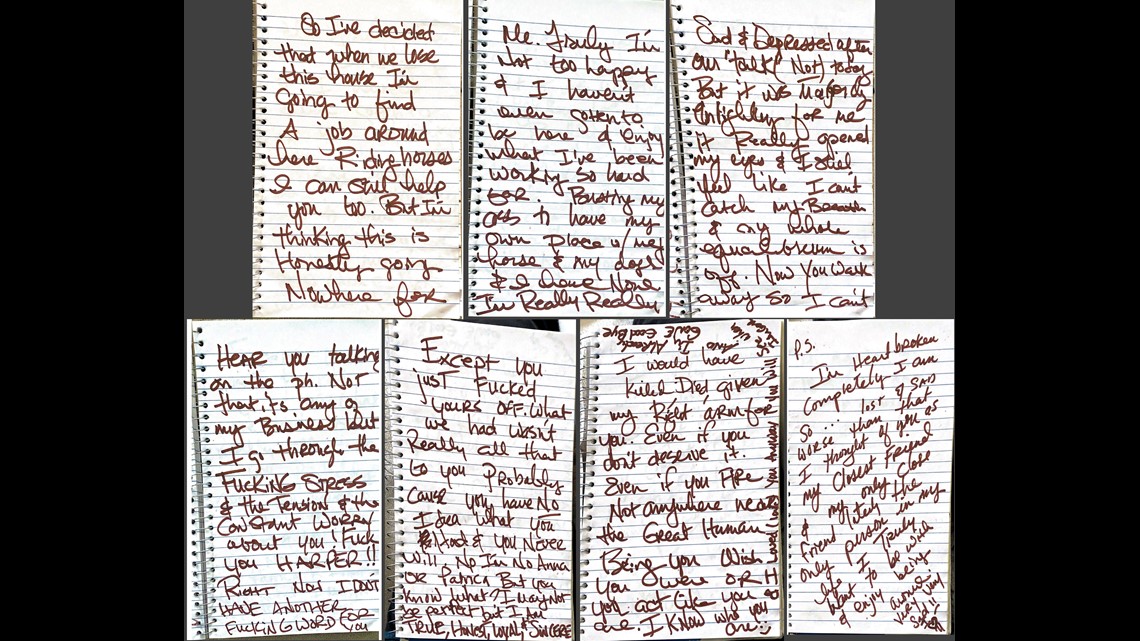 So I've decided
that when we lose
this house I'm
going to find
A job around
here Riding horses
I can still help
you too. But I'm
thinking this is
Honestly going
Nowhere for
Me. Truly I'm
Not too happy
& I haven't
even gotten to
be here & enjoy
what I've been
working so hard
for. Busting my
ass to have my
own place w/ my
horse & my dogs
& I have None
I'm Really Really
Sad & Depressed after
our "talk" (Not) today
But it was Majorly
Enlighten for me
it Really opened
my eyes & I still
feel like I can't
catch my Breath
& my whole
equalibrium is
off. Now you walk
away so I can't
HEAR you talking
on the ph. Not
that it's any of
my Business but
I go through the
FUCKING STRESS
& the Tension & the
Constant Worry
about you! Fuck
you HARPER!!
RIGHT NOW I DON'T
HAVE ANOTHER
FUCKING WORD FOR
you
Except you
just Fucked
yours OFF. What
we had wasn't
Really all that
to you Probably
Cause you have No
Idea what you
Had & you Never
will No I'm No Anna
OR Patrica But you
Know what? I may Not
be perfect but I am
TRUE, Honest, LOYAL & SINCERE
I would have
killed Died given
my Right arm for
you. Even if you
don't deserve it.
Even if you ARe
Not anywhere near
the Great Human
Being you wish
you were OR
you act like you
are. I Know who you
are
I'm Already
Gave Goodbye
P.S.
I'm Heartbroken
Completely I am
So... lost & SAD
worse than that
I thought of you as
my Closest Friend
& my only Close
friend lately the
only person in my
life I Truly
Want to be with
& enjoy being
around
very very